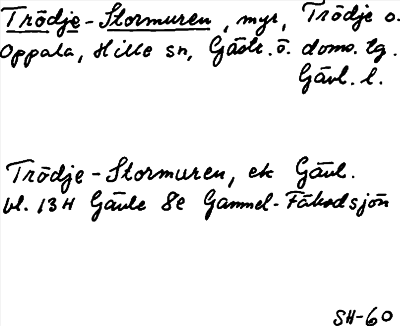 Trödje-Stormuren, myr, Trödje o.
Oppala, Hille sn, Gästr. ö. doms. tg.
Gävl. l.
Trödje-Stormuren, ek Gävl.
bl. 13H Gävle 8e Gammel-Fäbodsjön
SH-60